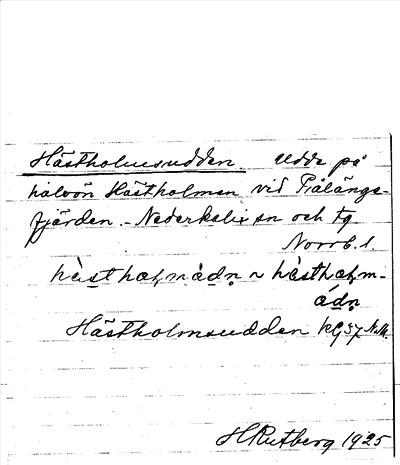 Hästholmsudden Udde på
halvön Hästholmen vid Pålängs-
fjärden. Nederkalix sn och tg
Norrb. l.
hàsthaɫmádn̥ ~ hàsthaɫm-
ádn̥
Hästholmsudden kg 57 N.M.
H Rutberg 1925